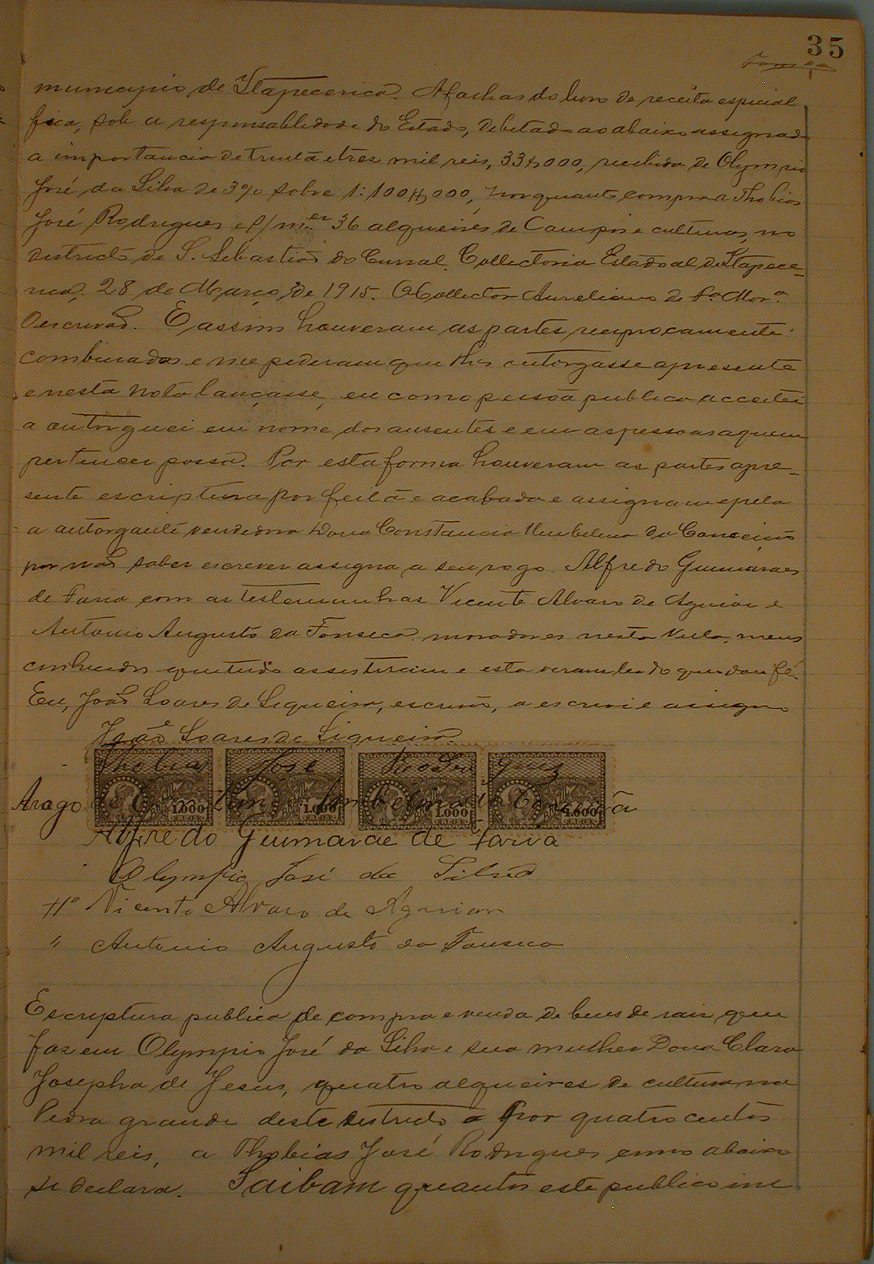 35
Fonseca
municipio de Itapecerica. A fachas do livro de receita especial
fica, sob a responsablidade do Estado, debetado ao abaixo assignado
a importancia de trinta e tres mil reis, 33$000, recebida de Olympio
José da Silva de 3% sobre 1:100$000, porquanto comprou a Thobias
José Rodrigues e s/m.er 36 alqueires de Campos e culturas, no
districto de S. Sebastião do Curral. Collectoria Estadoal de Itapece-
rica, 28 de Março, de 1915. O Collector Aureliano de
O escrivão. E assim houveram as partes reciprocamente
combinadas e me pediram que lhes outorgasse a presente
e nesta nota lançasse, eu como pessôa publica acceitei
a outorguei em nome dos ausentes e em as pessoas a quem
pertencer possa. Por esta forma houveram as partes apre-
sente escriptura por feita e acabada e assignam e pela
a outorgante vendedora Dona Constancia Umbelina da Conceicão
por não saber escrever assigna a seu rogo Alfredo Guimaraes
de Faria com as testemunhas Vicente Alvaro de Aguiar e
Antonio Augusto da Fonseca moradores nesta Villa, meus
conhecidos que tudo assistiram e esta veram ler do que dou fé.
Eu, João Soares de Siqueira, escrivão, a escrevi e assigno
João Soares de Siqueira
Thobias José Rodrigues
1.000 1.000 1.000 1.000
Arogo de Constancia Umbelina da Conceicão
Alfredo Guimarãe de Faria
Olympio José da Silva
Tª Vicente Alvaro de Aguiar
" Antonio Augusto da Fonseca
Escriptura publica de compra e venda de bens de raiz que
fazem Olympio José da Silva e sua mulher Dona Clara
Josepha de Jesus, quatro alqueires de cultura na
Pedra grande deste districto a por quatro centos
mil reis, a Thobias José Rodrigues como abaixo
se declara. Saibam quantos este publico ins